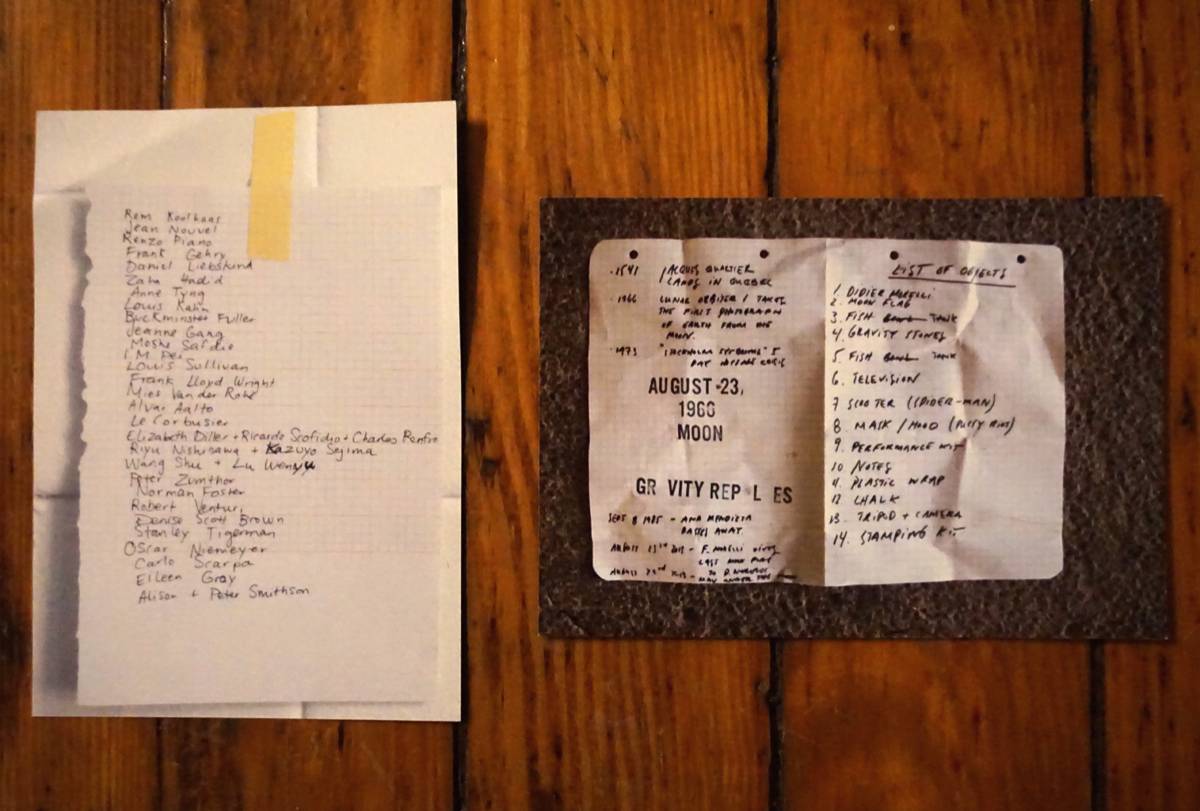 Rem Koolhaas
Jean Nouvel
Renzo Piano
Frank Gehry
Daniel Liebskind
Zaha Hadid
Anne Tyng
Louis Kahn
Buckminster Fuller
Jeanne Gang
Moshe Safdie
I.M. Pei
Louis Sullivan
Frank Lloyd Wright
Mies Van der Rohe
Alvar Aalto
Le Corbusier
Elizabeth Diller + Ricardo Scofidio + Charles Renfro
Riyu Nishizawa + Kazuyo Sejima
Wang Shu + Lu Wenyu
Peter Zumthor
Norman Foster
Robert Venturi
Denise Scott Brown
Stanley Tigerman
Oscar Niemeyer
Carlo Scarpa
Eileen Gray
Alison + Peter Smithson
·1541 JACQUES CARTIER
LANDS IN QUEBEC
·1966 LUNAR ORBITER 1 TAKES
THE FIRST PHOTOGRAPH
OF EARTH FROM THE
MOON.
·1973 "STOCKHOLM SYNDROME" 5
DAY HOSTAGE CRISIS
AUGUST 23,
1966
MOON
GR VITY REP L ES
SEPT 8 1985 - ANA MENDIETA
PASSES AWAY.
AUGUST
LAST
AUGUST
LIST OF OBJECTS
1. DIDIER MORELLI
2. MOON FLAG
3. FISH BOWL TANK
4. GRAVITY STONES
5. FISH BOWL TANK
6. TELEVISION
7 SCOOTER (SPIDER-MAN)
8. MASK / HOOD (PUSSY RIOT)
9. PERFORMANCE KIT
10. NOTES
11. PLASTIC WRAP
12 CHALK
13. TRIPOD + CAMERA
14. STAMPING KIT